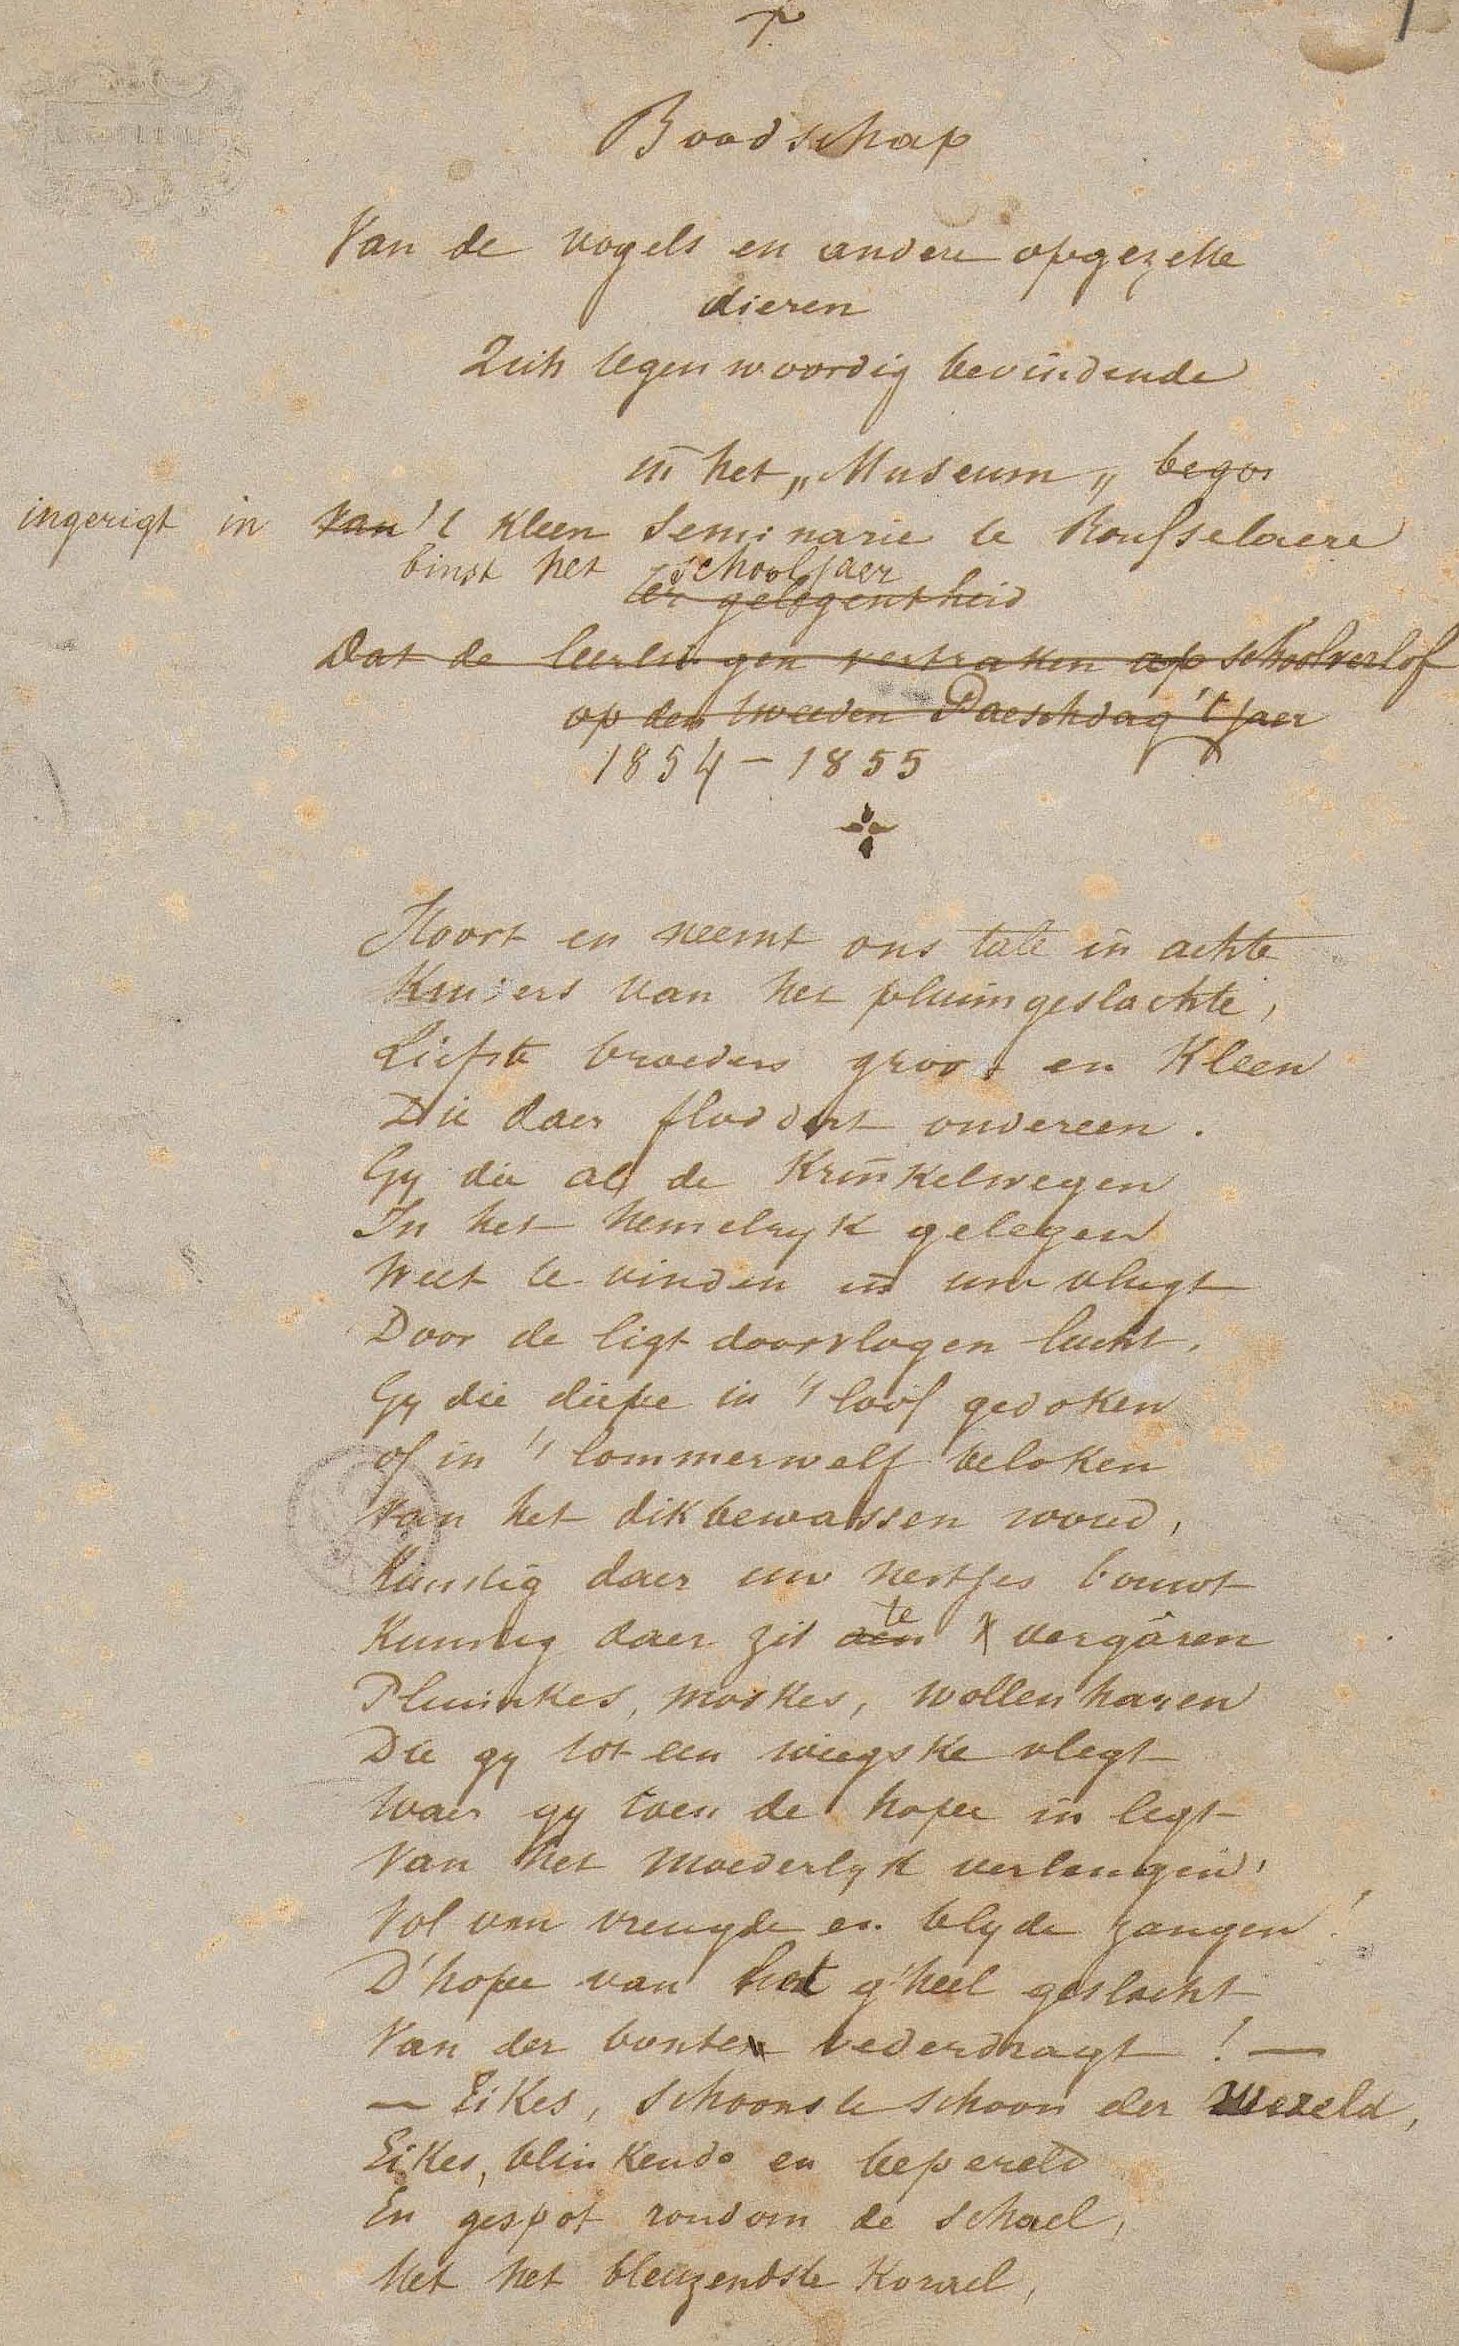 Boodschap
Van de vogels en andere opgezette
dieren
Zich tegenwoordig bevindende
in het „Museum„ begos
ingerigt in van 't kleen Seminarie te Rousselaere
binst het schooljaer
ter gelegentheid
Dat de leerlingen vertraken op schoolverlof
op den tweeden Paeschdag 't jaer
1854 - 1855
Hoort en neemt ons tale in achte
Kruisers van het pluimgeslachte,
Liefste broeders groot en kleen
Die daer floddert ondereen.
Gy die al de krinkelwegen
In het hemelryk gelegen
Weet te vinden in uw vlugt
Door de ligt doorvlogen lucht.
Gy die diepe in 't loof gedoken
of in 't lommerwelf beloken
Van het dikbewassen woud,
Kunstig daer uw nestjes bouwt
Kunstig daer zit aen te vergâren
Pluimkes, moskes, wollen haren
Die gy tot een wiegske vlegt
Waer gy toen de hope in legt
Van het moederlyk verlangen,
Vol van vreugde en blyde zangen!
D'hope van het g'heel geslacht
Van der bonten vederdragt! —
— Eikes, schoonste schoon der Wereld,
Eikes, blinkende en bepereld
En gespot rondom de schael,
Met het bleuzendste korael,